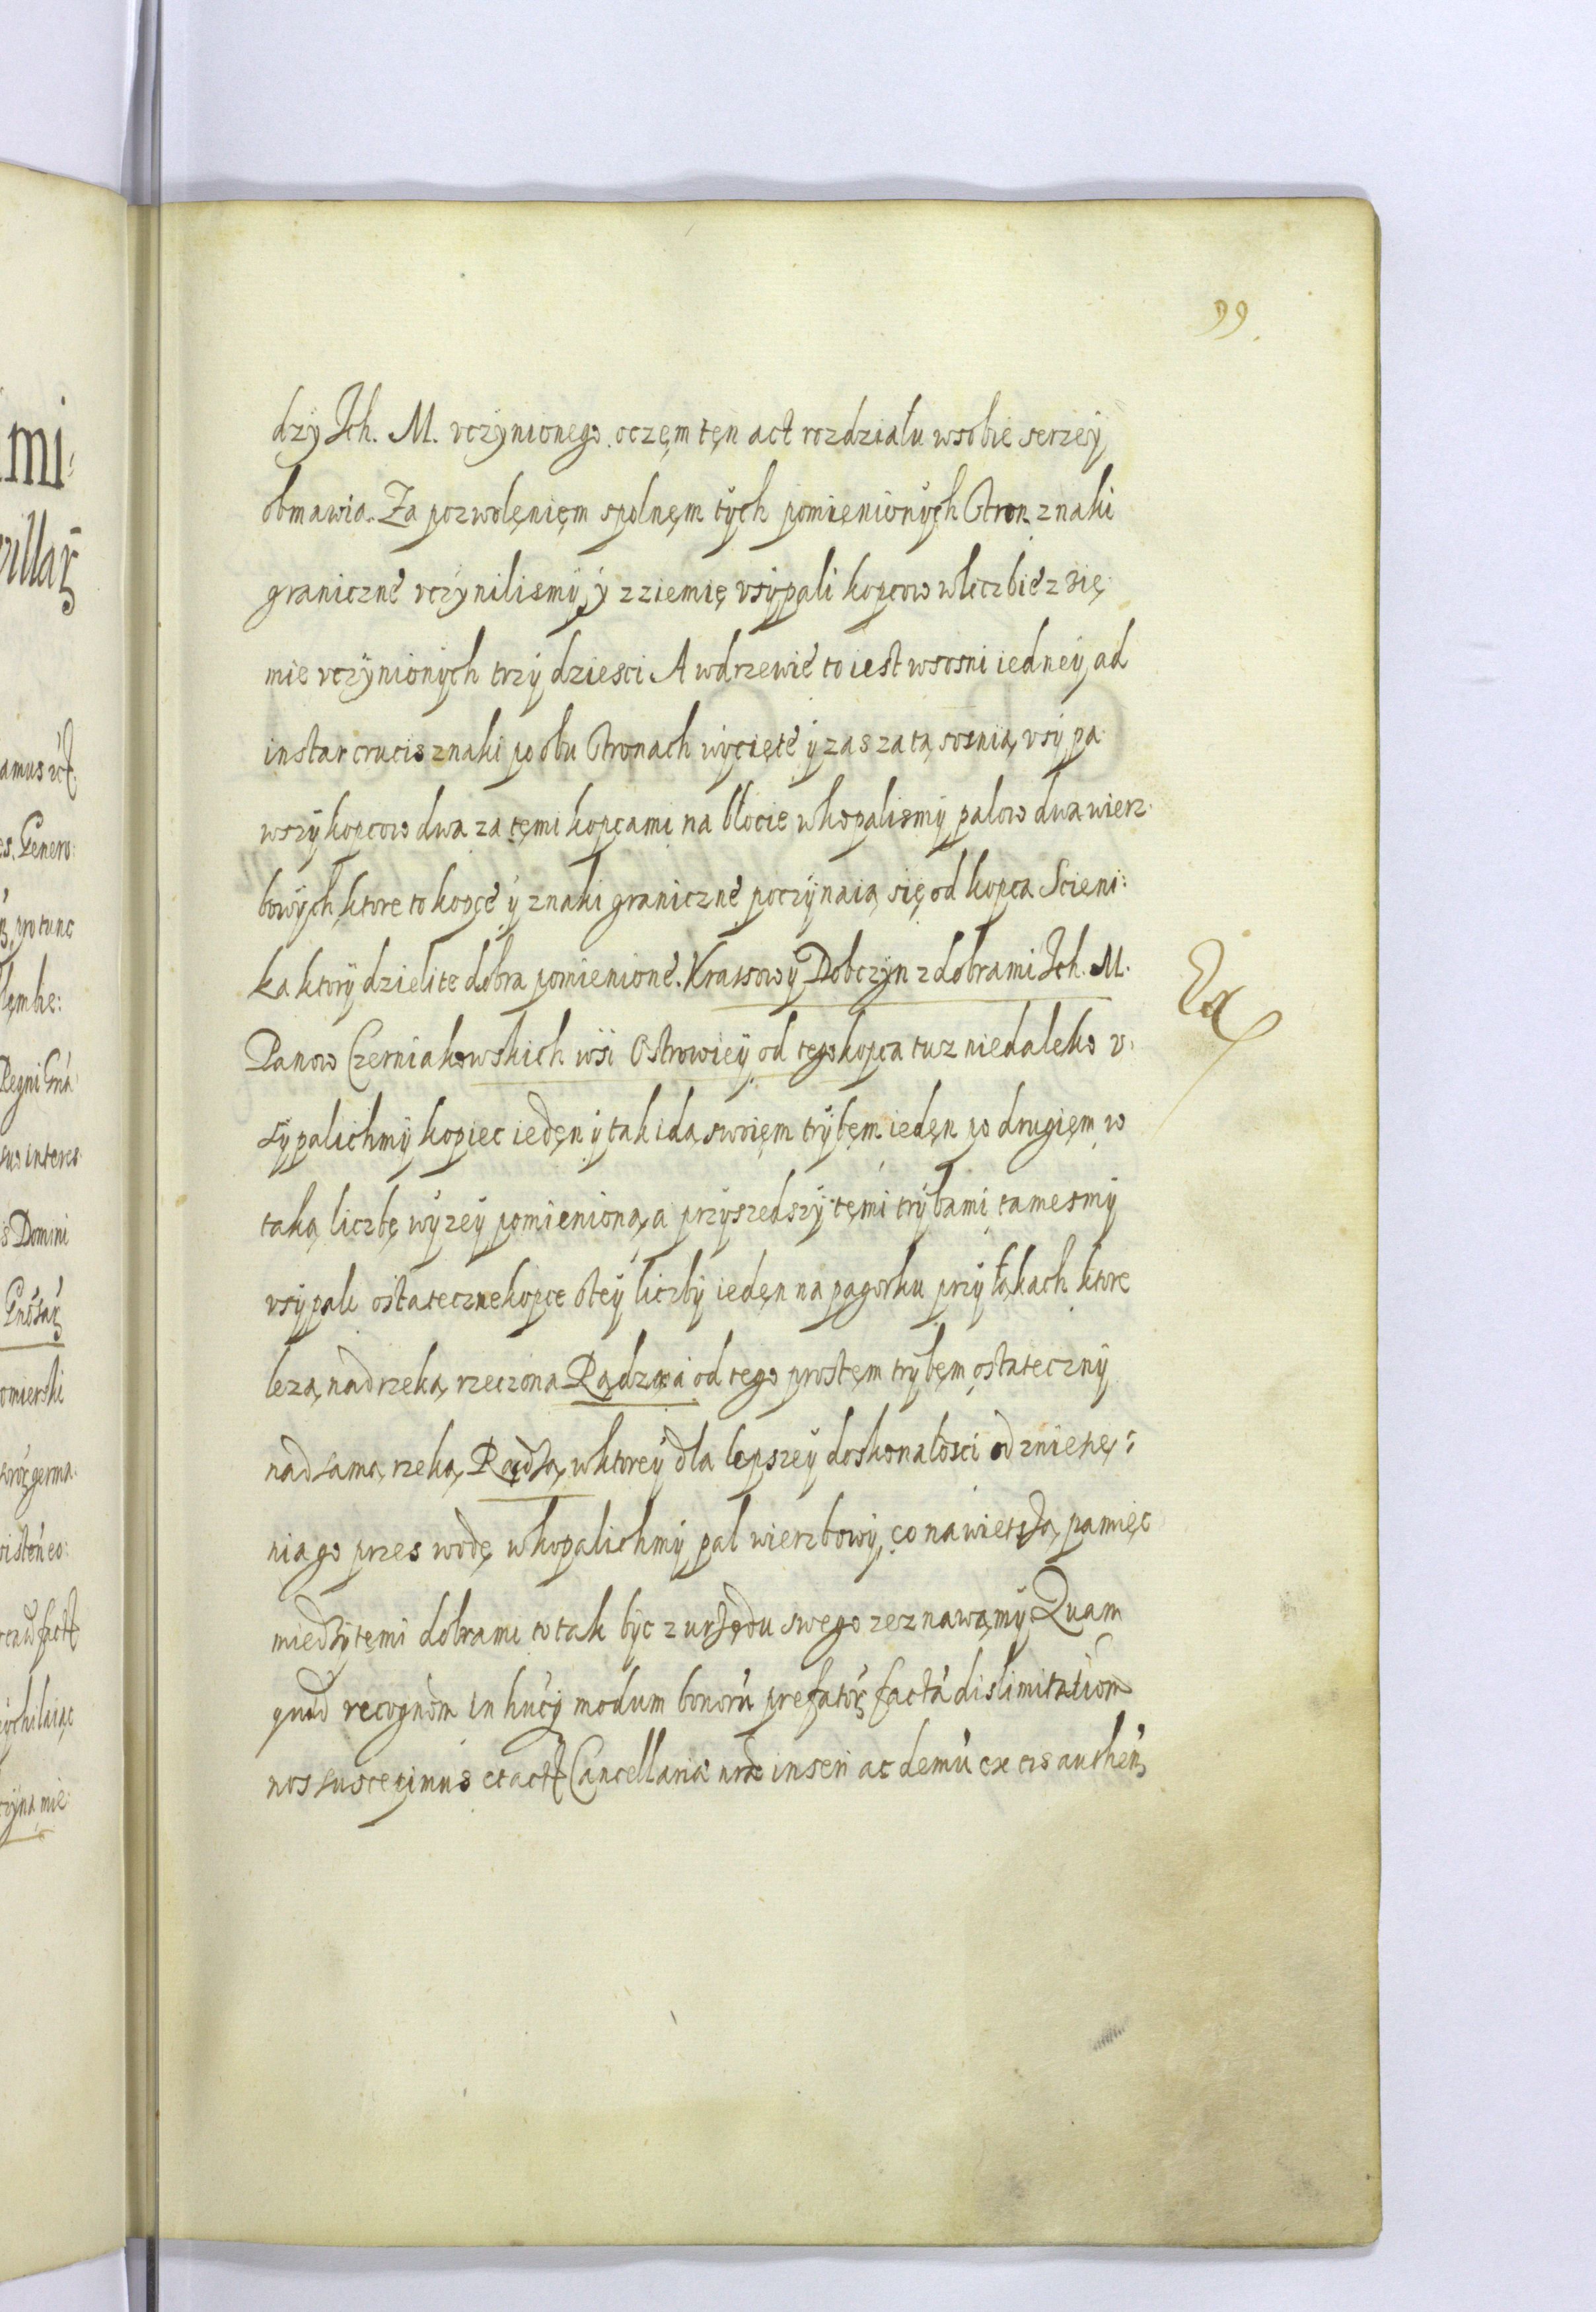 99.
dzy Ich. M. vczynionego. oczęm tęn act rozdziału wsobie serzey
obmawia. Za pozwolęnięm spolnęm tych pomienionych Stron znaki
graniczné vczynilismy, y zziemię vsypali kopcow wliczbie z zię
mie vczynionych trzydziesci A wdrzewié to iest wsosni iedney, ad
instar crucis znaki po obu Stronach wycięté y zas za tą sosnią, vsypa
wszy kopcow dwa za tęmi kopcami na błocie wkopalismy palow dwa wierz
bowych, ktore to kopcé y znaki granicznė poczynaią się od kopca Scieni:
ka ktory dzieli te dobra pomienioné. Krassowy Dobczyn z dobrami Ich. M.
Panow Czerniakowskich wsi Ostrowiey od tego kopca tuz niedaleko v:
sypalichmy kopiec iedęn y tak idą swoięm trybęm iedęn po drugięm w
taką liczbę wyzey pomienioną, a przyszedszy tęmi trybami tamesmy
vsypali ostateczne kopce otey liczby iedęn na pagorku przy łąkach ktore
lezą nad rzeką rzeczona Rądzą a od tego prostęm trybęm ostateczny
nad samą rzeką, Rądzą, w ktorey dla lepszey doskonałosci od zniesię:
nia go przes wodę wkopalichmy pal wierzbowy, co na wietszą pamięc
miedzy tęmi dobrami to tak byc z urzędu swego zeznawamy. Quam
quid recognom in hucy modum bonorū prefator factā dislimitatiom
nos suscepimus et act Cancellariæ nræ inseri ac demū ex eis authen